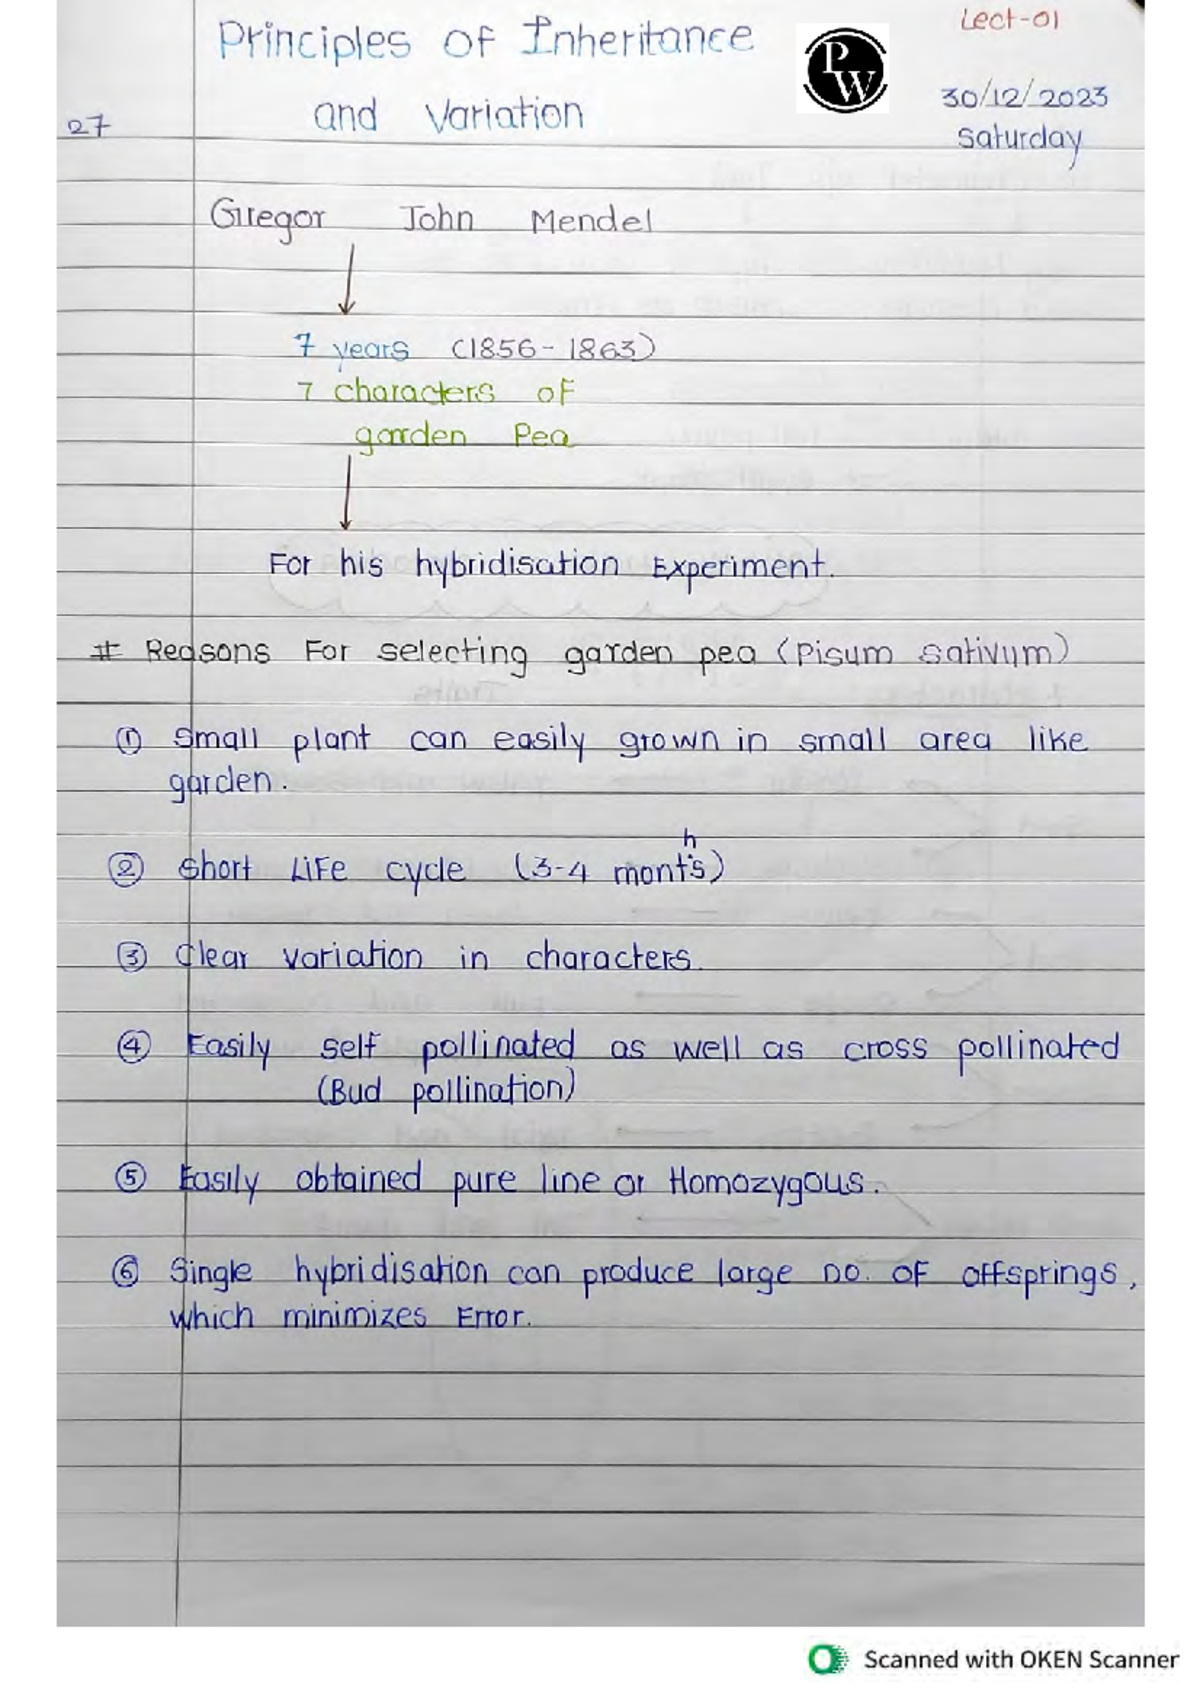 Principles of Inheritance
and Variation
PW
Lect-01
30/12/2023
Saturday
27
Gregor John Mendel
7 years (1856-1863)
7 characters of
garden Pea
For his hybridisation Experiment.
# Reasons For selecting garden pea (Pisum sativum)
① Small plant can easily grown in small area like
garden.
② Short Life cycle (3-4 months)
③ Clear variation in characters.
④ Easily self pollinated as well as cross pollinated
(Bud pollination)
⑤ Easily obtained pure line or Homozygous.
⑥ Single hybridisation can produce large no. of offsprings,
which minimizes Error.
Scanned with OKEN Scanner